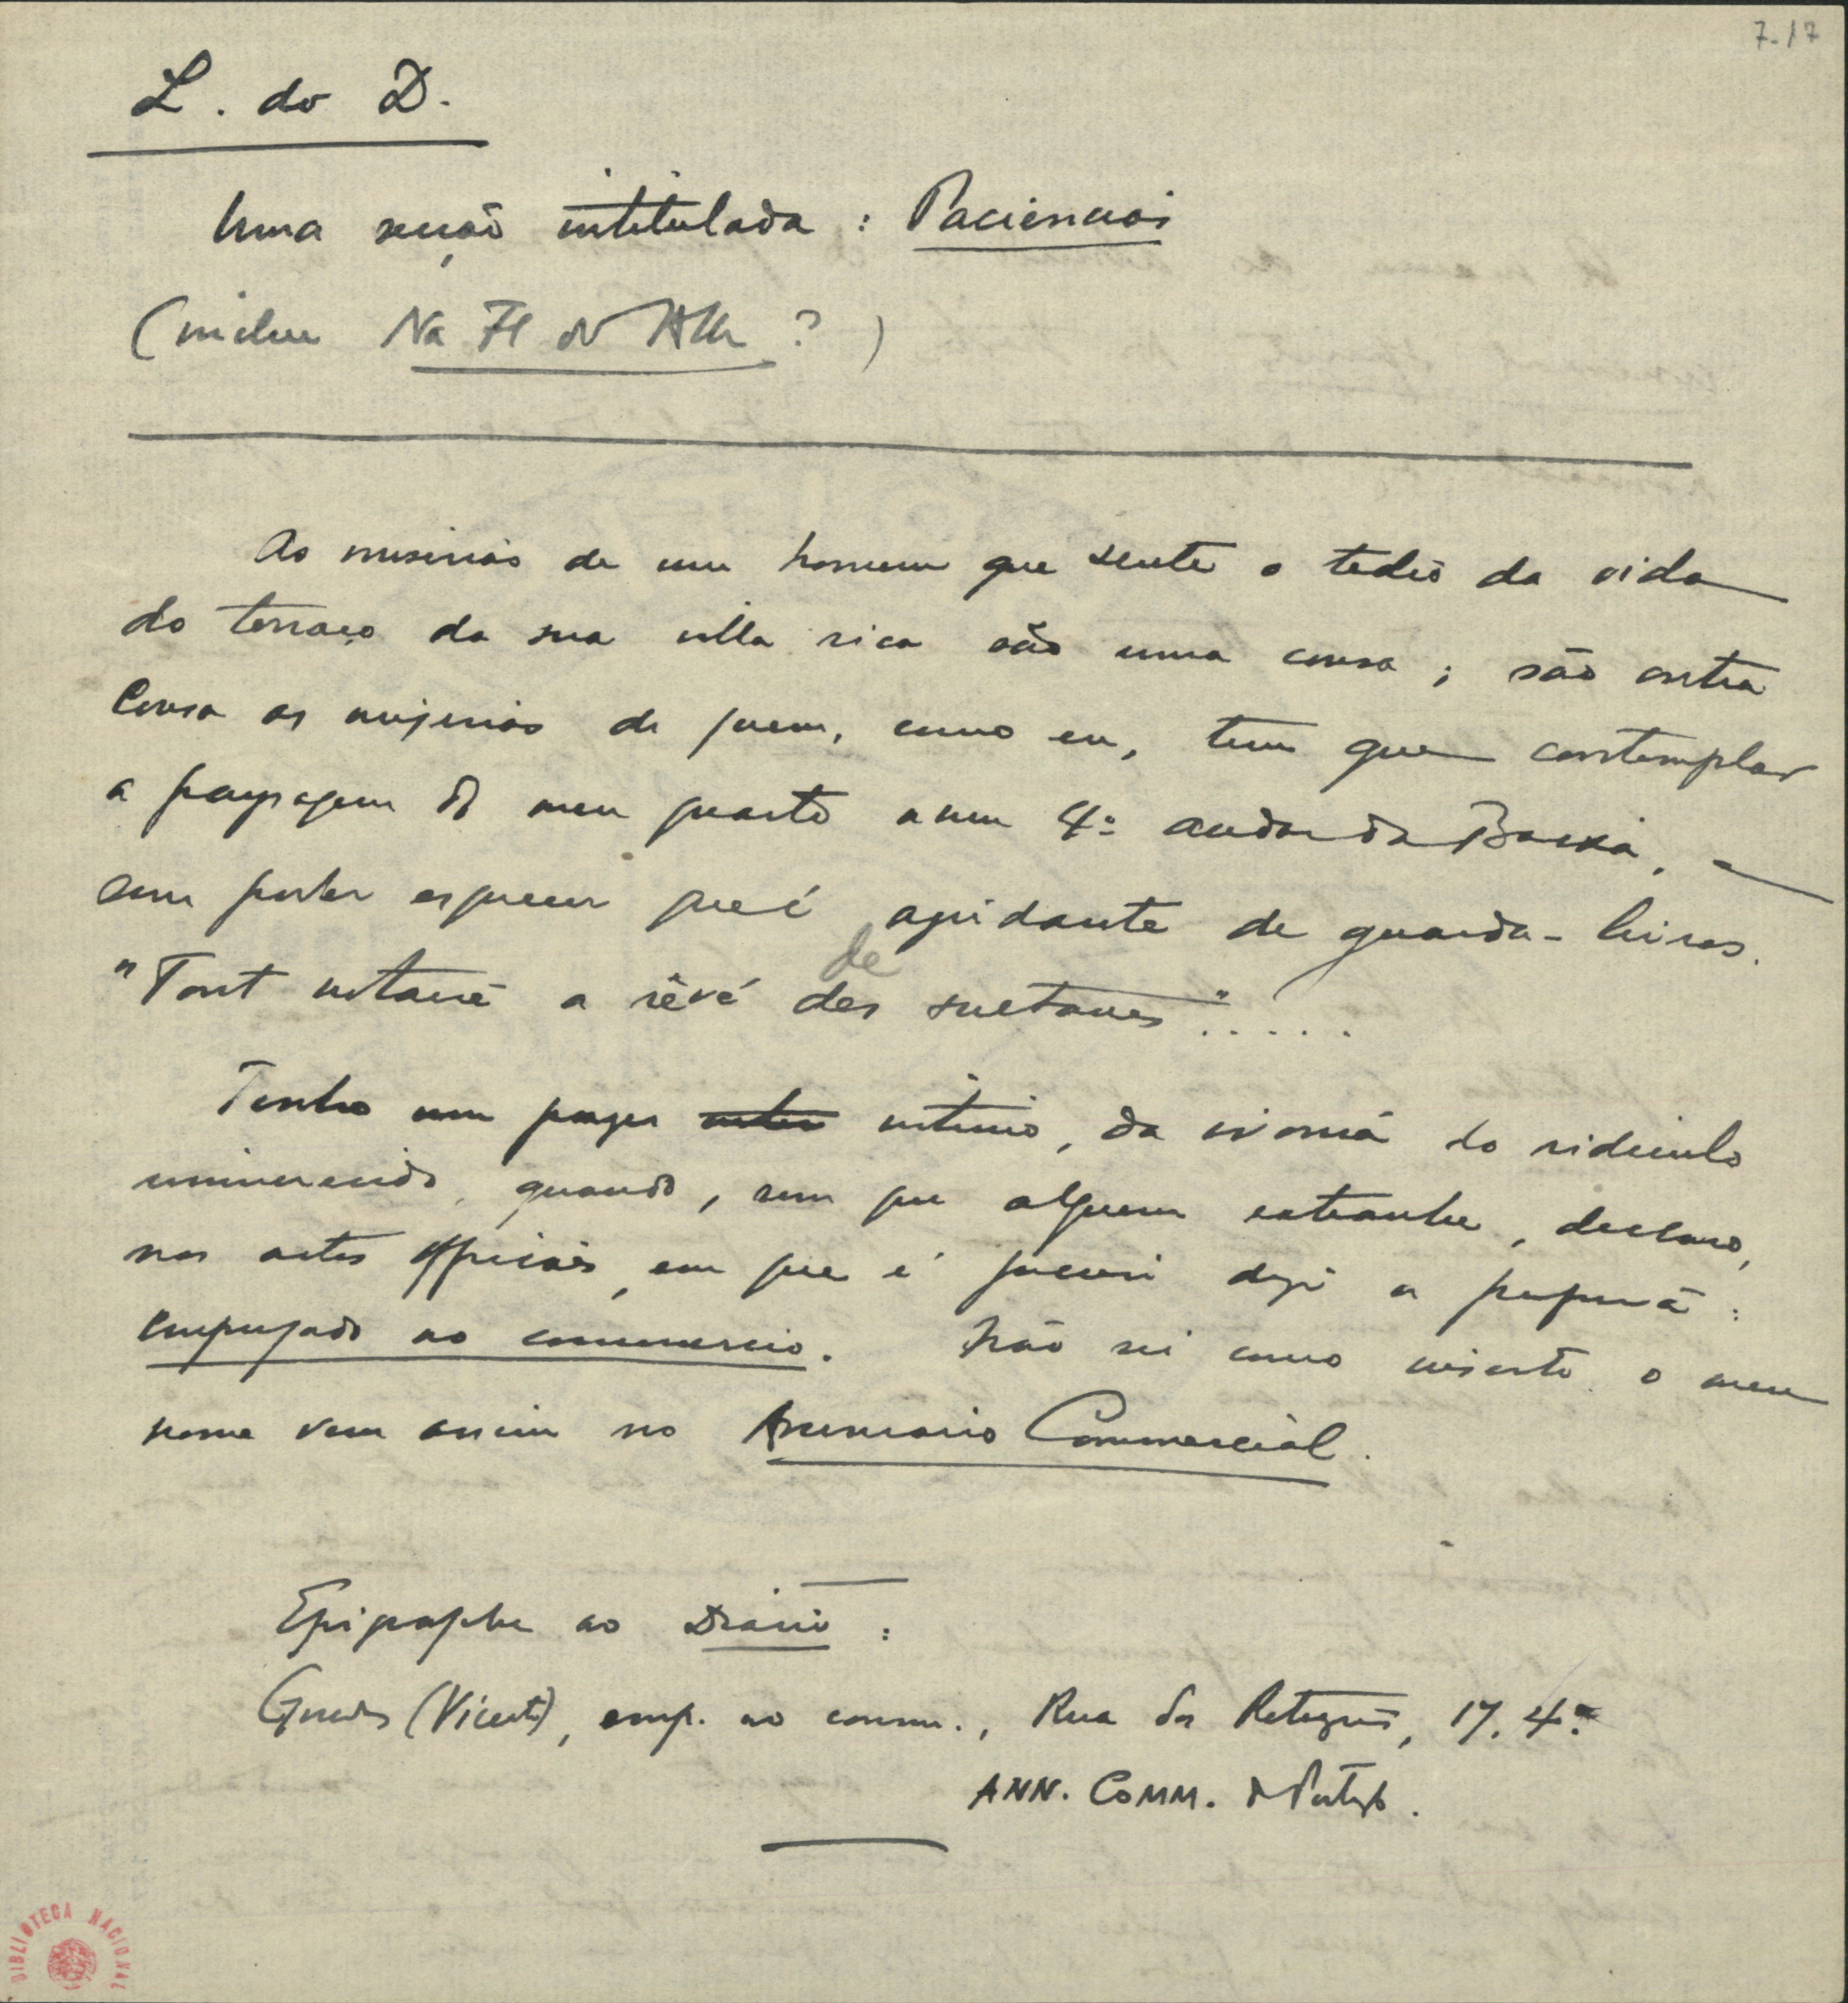 7-17
L. do D.
Uma secção intitulada: Paciencias
(inclue Na Fl do Alh ?)
As miserias de um homem que sente o tedio da vida
do terraço da sua villa rica são uma cousa; são outra
cousa as miserias de quem, como eu, tem que contemplar
a paysagem do meu quarto num 4º andar da Baixa, e
sem poder esquecer que é ajudante de guarda-livros.
de
"Tout notaire a rêvé des sultanes".....
Tenho um prazer intimo, da ironia do ridiculo
immerecido, quando, sem que alguem extranhe, declaro,
nos actos officiaes, em que é preciso dizer a profissão:
empregado no commercio. Não sei como inserto o meu
nome vem assim no Annuario Commercial.
Epigraphe ao Diario:
Guedes (Vicente), emp. no comm., Rua dos Retrozeiros, 17. 4º
ANN. COMM. de Portugal.
BIBLIOTECA NACIONAL